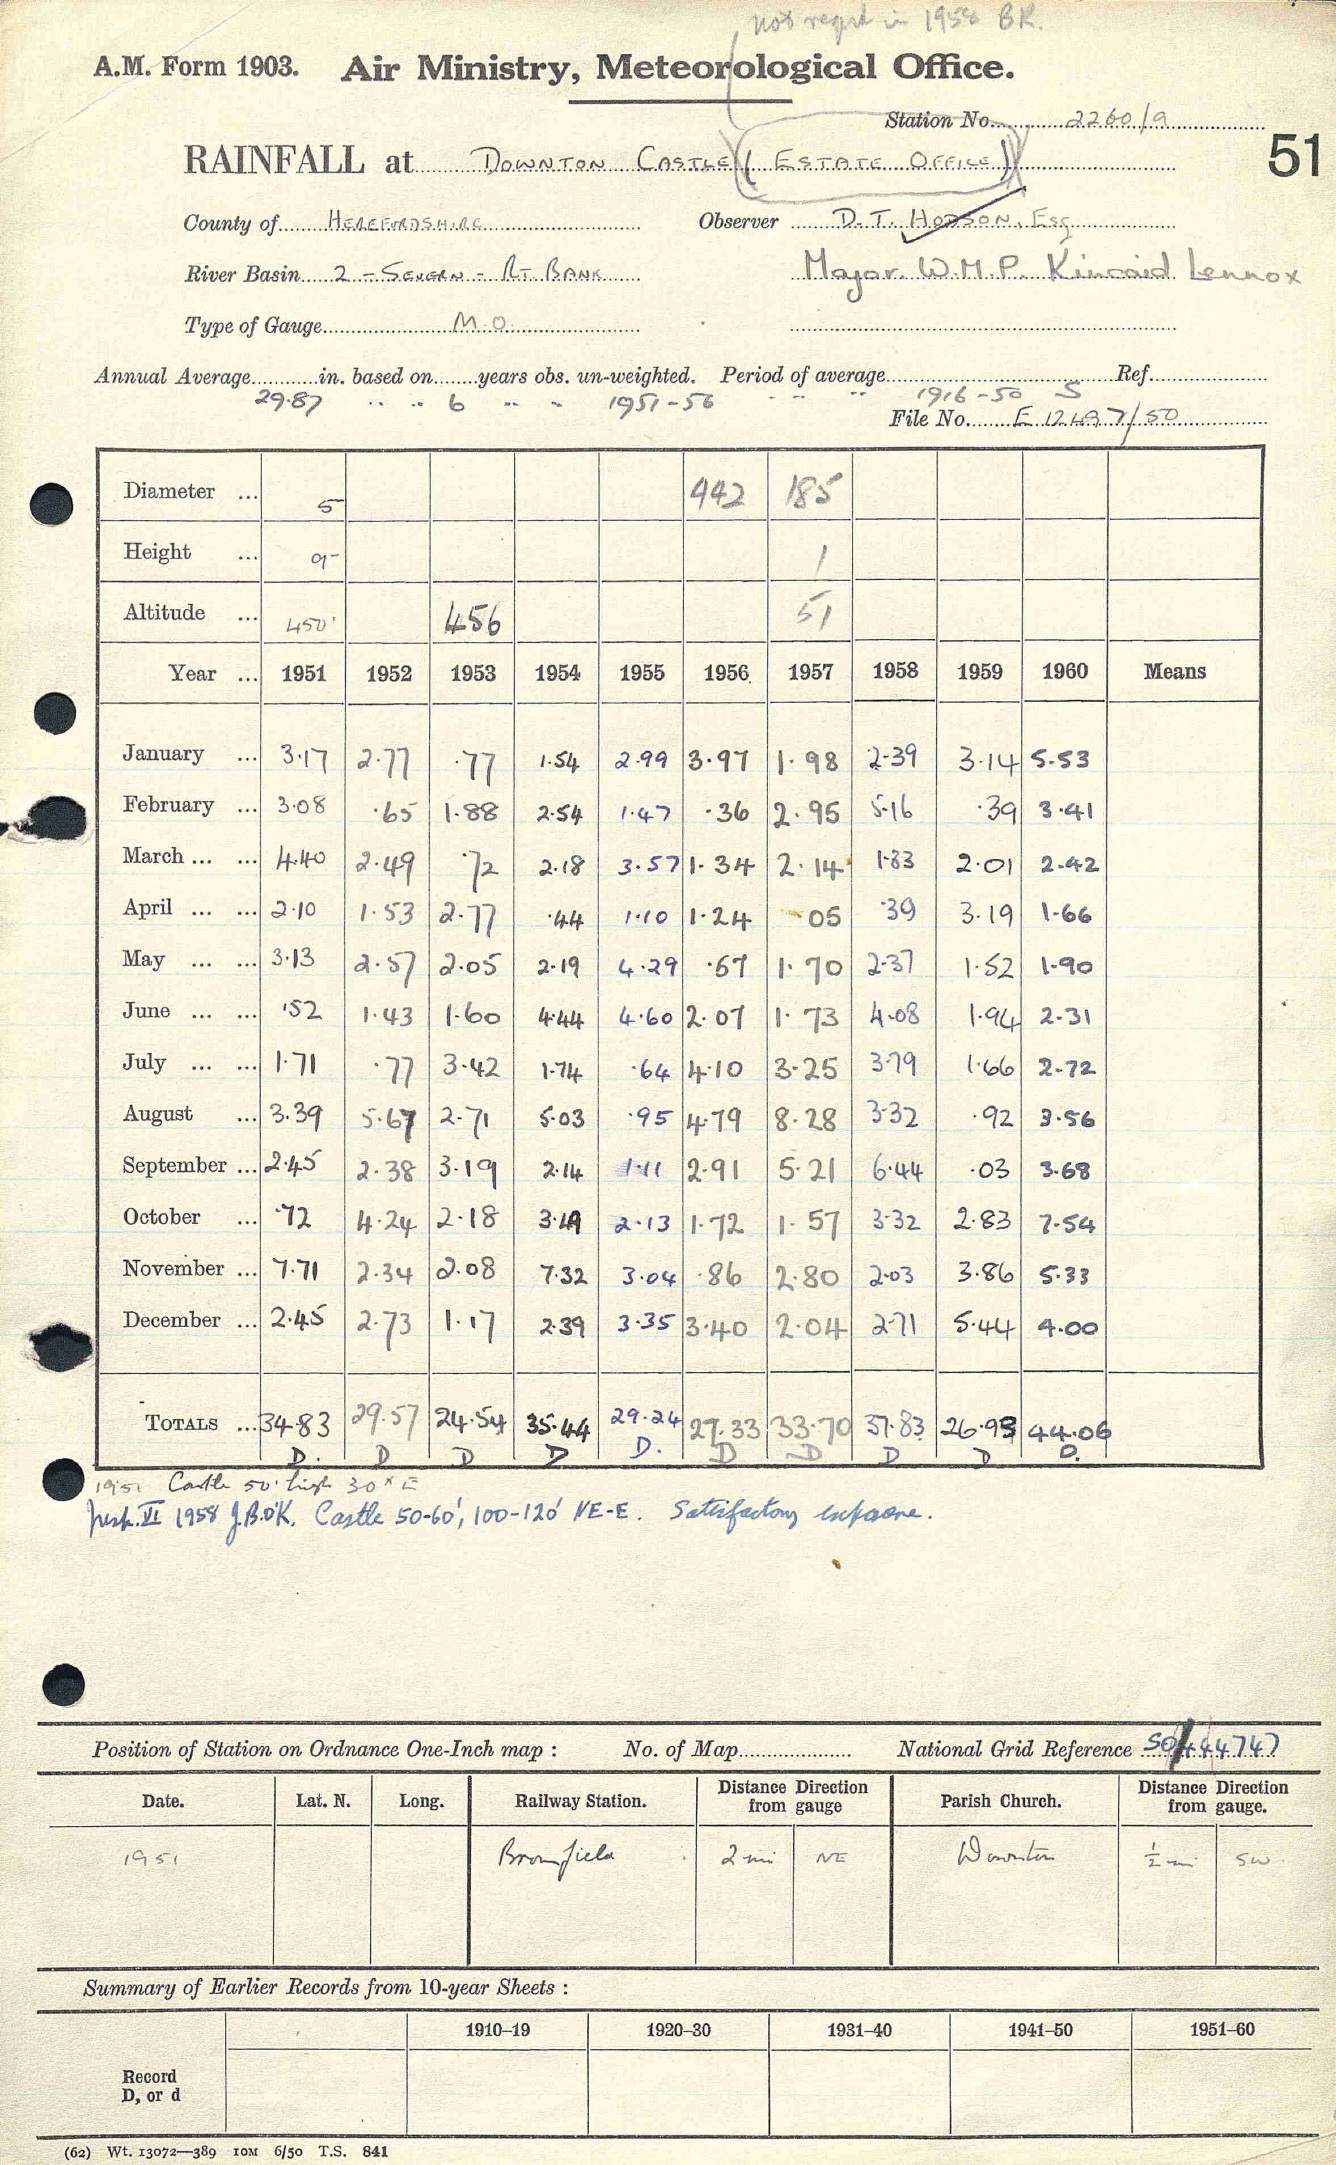 not reqd in 1958 BR.
A.M. Form 1903. Air Ministry, Meteorological Office.
Station No. 2260/9
51
RAINFALL at DOWNTON CASTLE (ESTATE OFFICE)
County of HEREFORDSHIRE Observer D.T. HODSON, ESQ
River Basin 2 - SEVERN - RT. BANK Major W.M.P. Kincaid Lennox
Type of Gauge M.O.
Annual Average in. based on years obs. un-weighted. Period of average Ref.
29.87 " " 6 " " 1951-56 " " " 1916-50 S
File No. E 12497/50
Diameter ... 5 442 185
Height ... 9 1
Altitude ... 450' 456 51
Year ... 1951 1952 1953 1954 1955 1956 1957 1958 1959 1960 Means
January ... 3.17 2.77 .77 1.54 2.99 3.97 1.98 2.39 3.14 5.53
February ... 3.08 .65 1.88 2.54 1.47 .36 2.95 5.16 .39 3.41
March ... ... 4.40 2.49 .72 2.18 3.57 1.34 2.14 1.83 2.01 2.42
April ... ... 2.10 1.53 2.77 .44 1.10 1.24 .05 .39 3.19 1.66
May ... ... 3.13 2.57 2.05 2.19 4.29 .67 1.70 2.37 1.52 1.90
June ... ... .52 1.43 1.60 4.44 4.60 2.07 1.73 4.08 1.94 2.31
July ... ... 1.71 .77 3.42 1.74 .64 4.10 3.25 3.79 1.66 2.72
August ... 3.39 5.67 2.71 5.03 .95 4.79 8.28 3.32 .92 3.56
September ... 2.45 2.38 3.19 2.14 1.11 2.91 5.21 6.44 .03 3.68
October ... .72 4.24 2.18 3.49 2.13 1.72 1.57 3.32 2.83 7.54
November ... 7.71 2.34 2.08 7.32 3.04 .86 2.80 2.03 3.86 5.33
December ... 2.45 2.73 1.17 2.39 3.35 3.40 2.04 2.71 5.44 4.00
TOTALS ... 34.83 29.57 24.54 35.44 29.24 27.33 33.70 37.83 26.93 44.06
D. D D D D. D D D D D.
1951 Castle 50' high 30 x E
Insp. VI 1958 J.B.O'K. Castle 50-60', 100-120' NE-E. Satisfactory exposure.
Position of Station on Ordnance One-Inch map : No. of Map National Grid Reference SO/444747
Date. Lat. N. Long. Railway Station. Distance from gauge Direction Parish Church. Distance from gauge. Direction
1951 Bromfield 2 mi NE Downton ½ mi SW.
Summary of Earlier Records from 10-year Sheets :
1910–19 1920–30 1931–40 1941–50 1951–60
Record
D, or d
(62) Wt. 13072—389 10M 6/50 T.S. 841